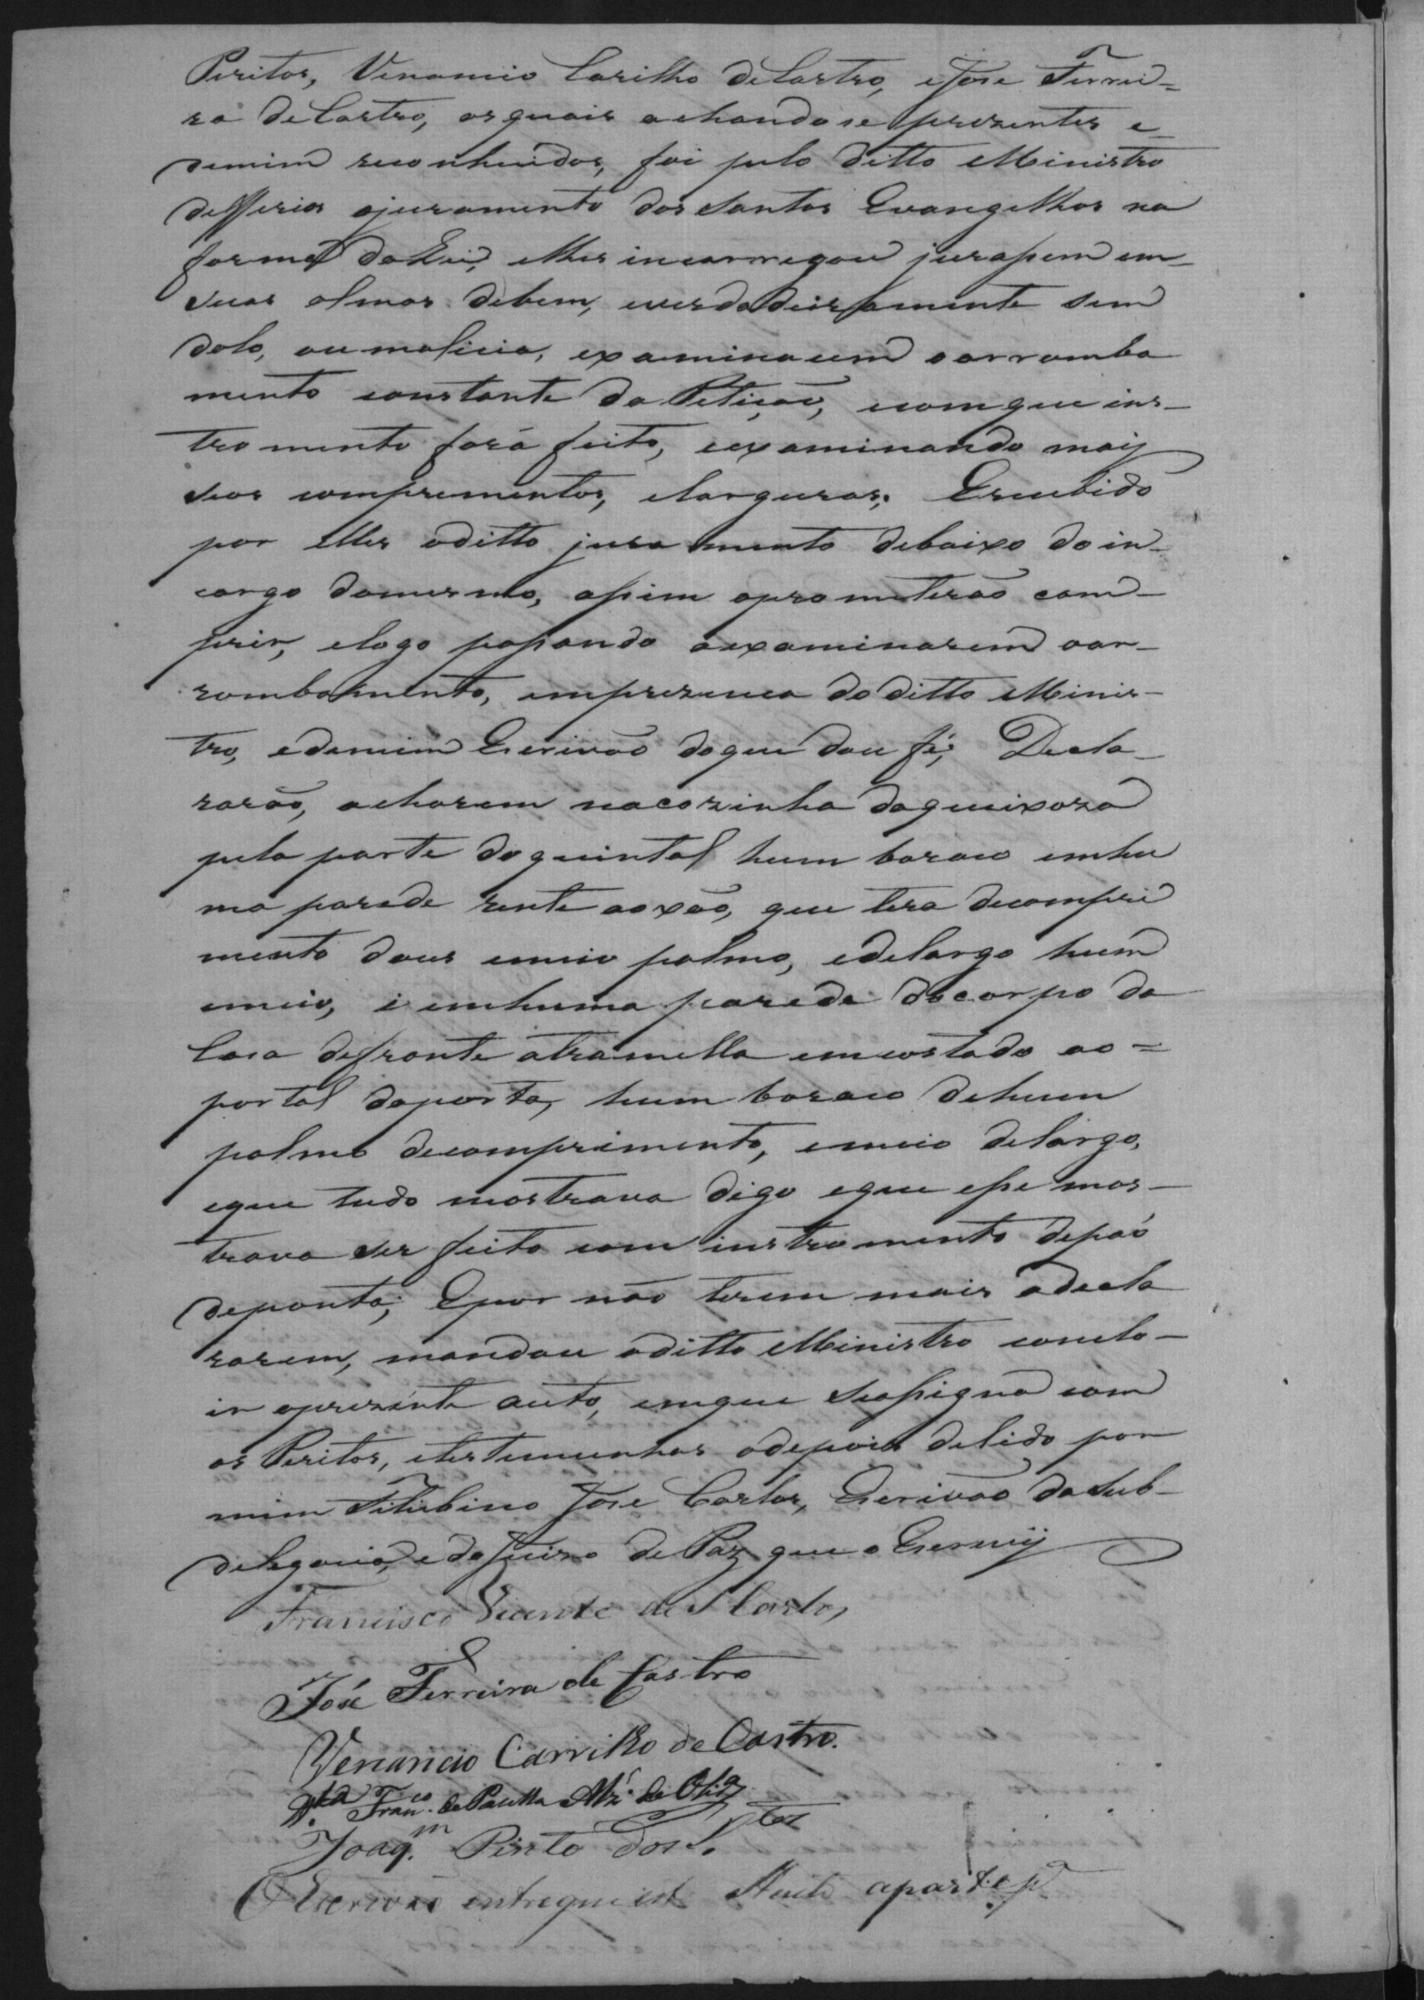 Peritos, Venancio Carilho deCastro, eJose Ferrei=
ra deCastro, osquais achandose prezentes e
demim reconhecidos, foi pelo ditto Ministro
defferior ojuramento dos Santos Evangelhos na
forma daLei, elhes incarregou jurassem em
suas almas debem, everdadeiramente sem
dolo, oumalicia, examinacem oarromba
mento constante da Petição, ecomque ins-
tromento forá feito, eexaminando mais
seos comprementos, elarguras; Ereceebido
por elles oditto juramento debaixo do in-
cargo domesmo, assim oprometerão com-
prir, elogo passando aexaminarem oar-
rombamento, emprezenca do ditto Minis-
tro, edemim Escrivão doque dou fé; Decla-
rarão, acharem nacozinha daqueixoza
pela parte doquintal hum boraco emhu
ma parede rente aoxão, que tera decompri
mento dous emeio palmo, edelargo hum
emeio, i emhuma parede docorpo da
Casa defronte atramella emcostado ao=
portal daporta, hum boraco dehum
palmo decomprimento, emeio delargo,
eque tudo mostrava digo eque esse mos-
trava ser feito com instromento depáo
deponta; Epor não terem mais adecla
rarem, mandou oditto Ministro conclo-
ir oprezente auto, emque seassigna com
os Peritos, etestemunhas odepois delido por
mim Silubino Jose Carlos, Escrivão daSub-
delegacia, edoJuizo de Paz que o Escrevij
Francisco Vicente de S Castro,
José Ferreira de Castro
Venancio Carrilho de Castro.
Franco. de Paulla Alz' de Olivª
Joaqm. Pinto dos S.tos
O Escrivão entregue este Auto aparte